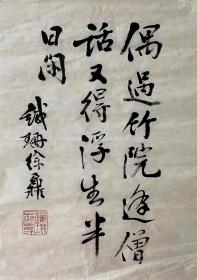 偶過竹院逢僧
話又得浮生半
日閑
鐵珊徐鼐